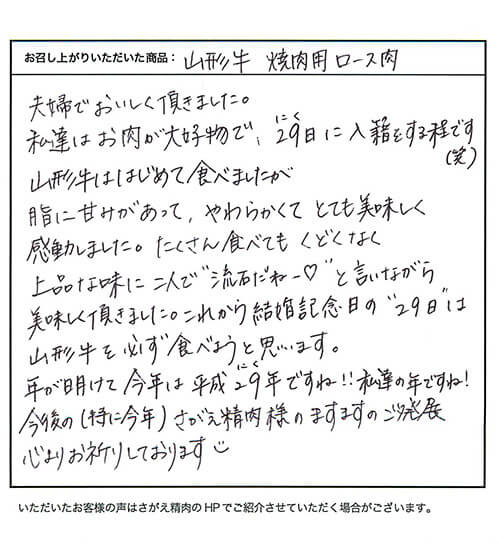 お召し上がりいただいた商品： 山形牛 焼肉用ロース肉
夫婦でおいしく頂きました。
私達はお肉が大好物で、29日に入籍をする程です
にく
(笑)
山形牛ははじめて食べましたが
脂に甘みがあって、やわらかくてとても美味しく
感動しました。たくさん食べてもくどくなく
上品な味に二人で"流石だねー♡"と言いながら
美味しく頂きました。これから結婚記念日の"29日"は
山形牛を必ず食べようと思います。
にく
年が明けて今年は平成29年ですね!!私達の年ですね!
今後の(特に今年)さがえ精肉様のますますのご発展
心よりお祈りしております
いただいたお客様の声はさがえ精肉のHPでご紹介させていただく場合がございます。